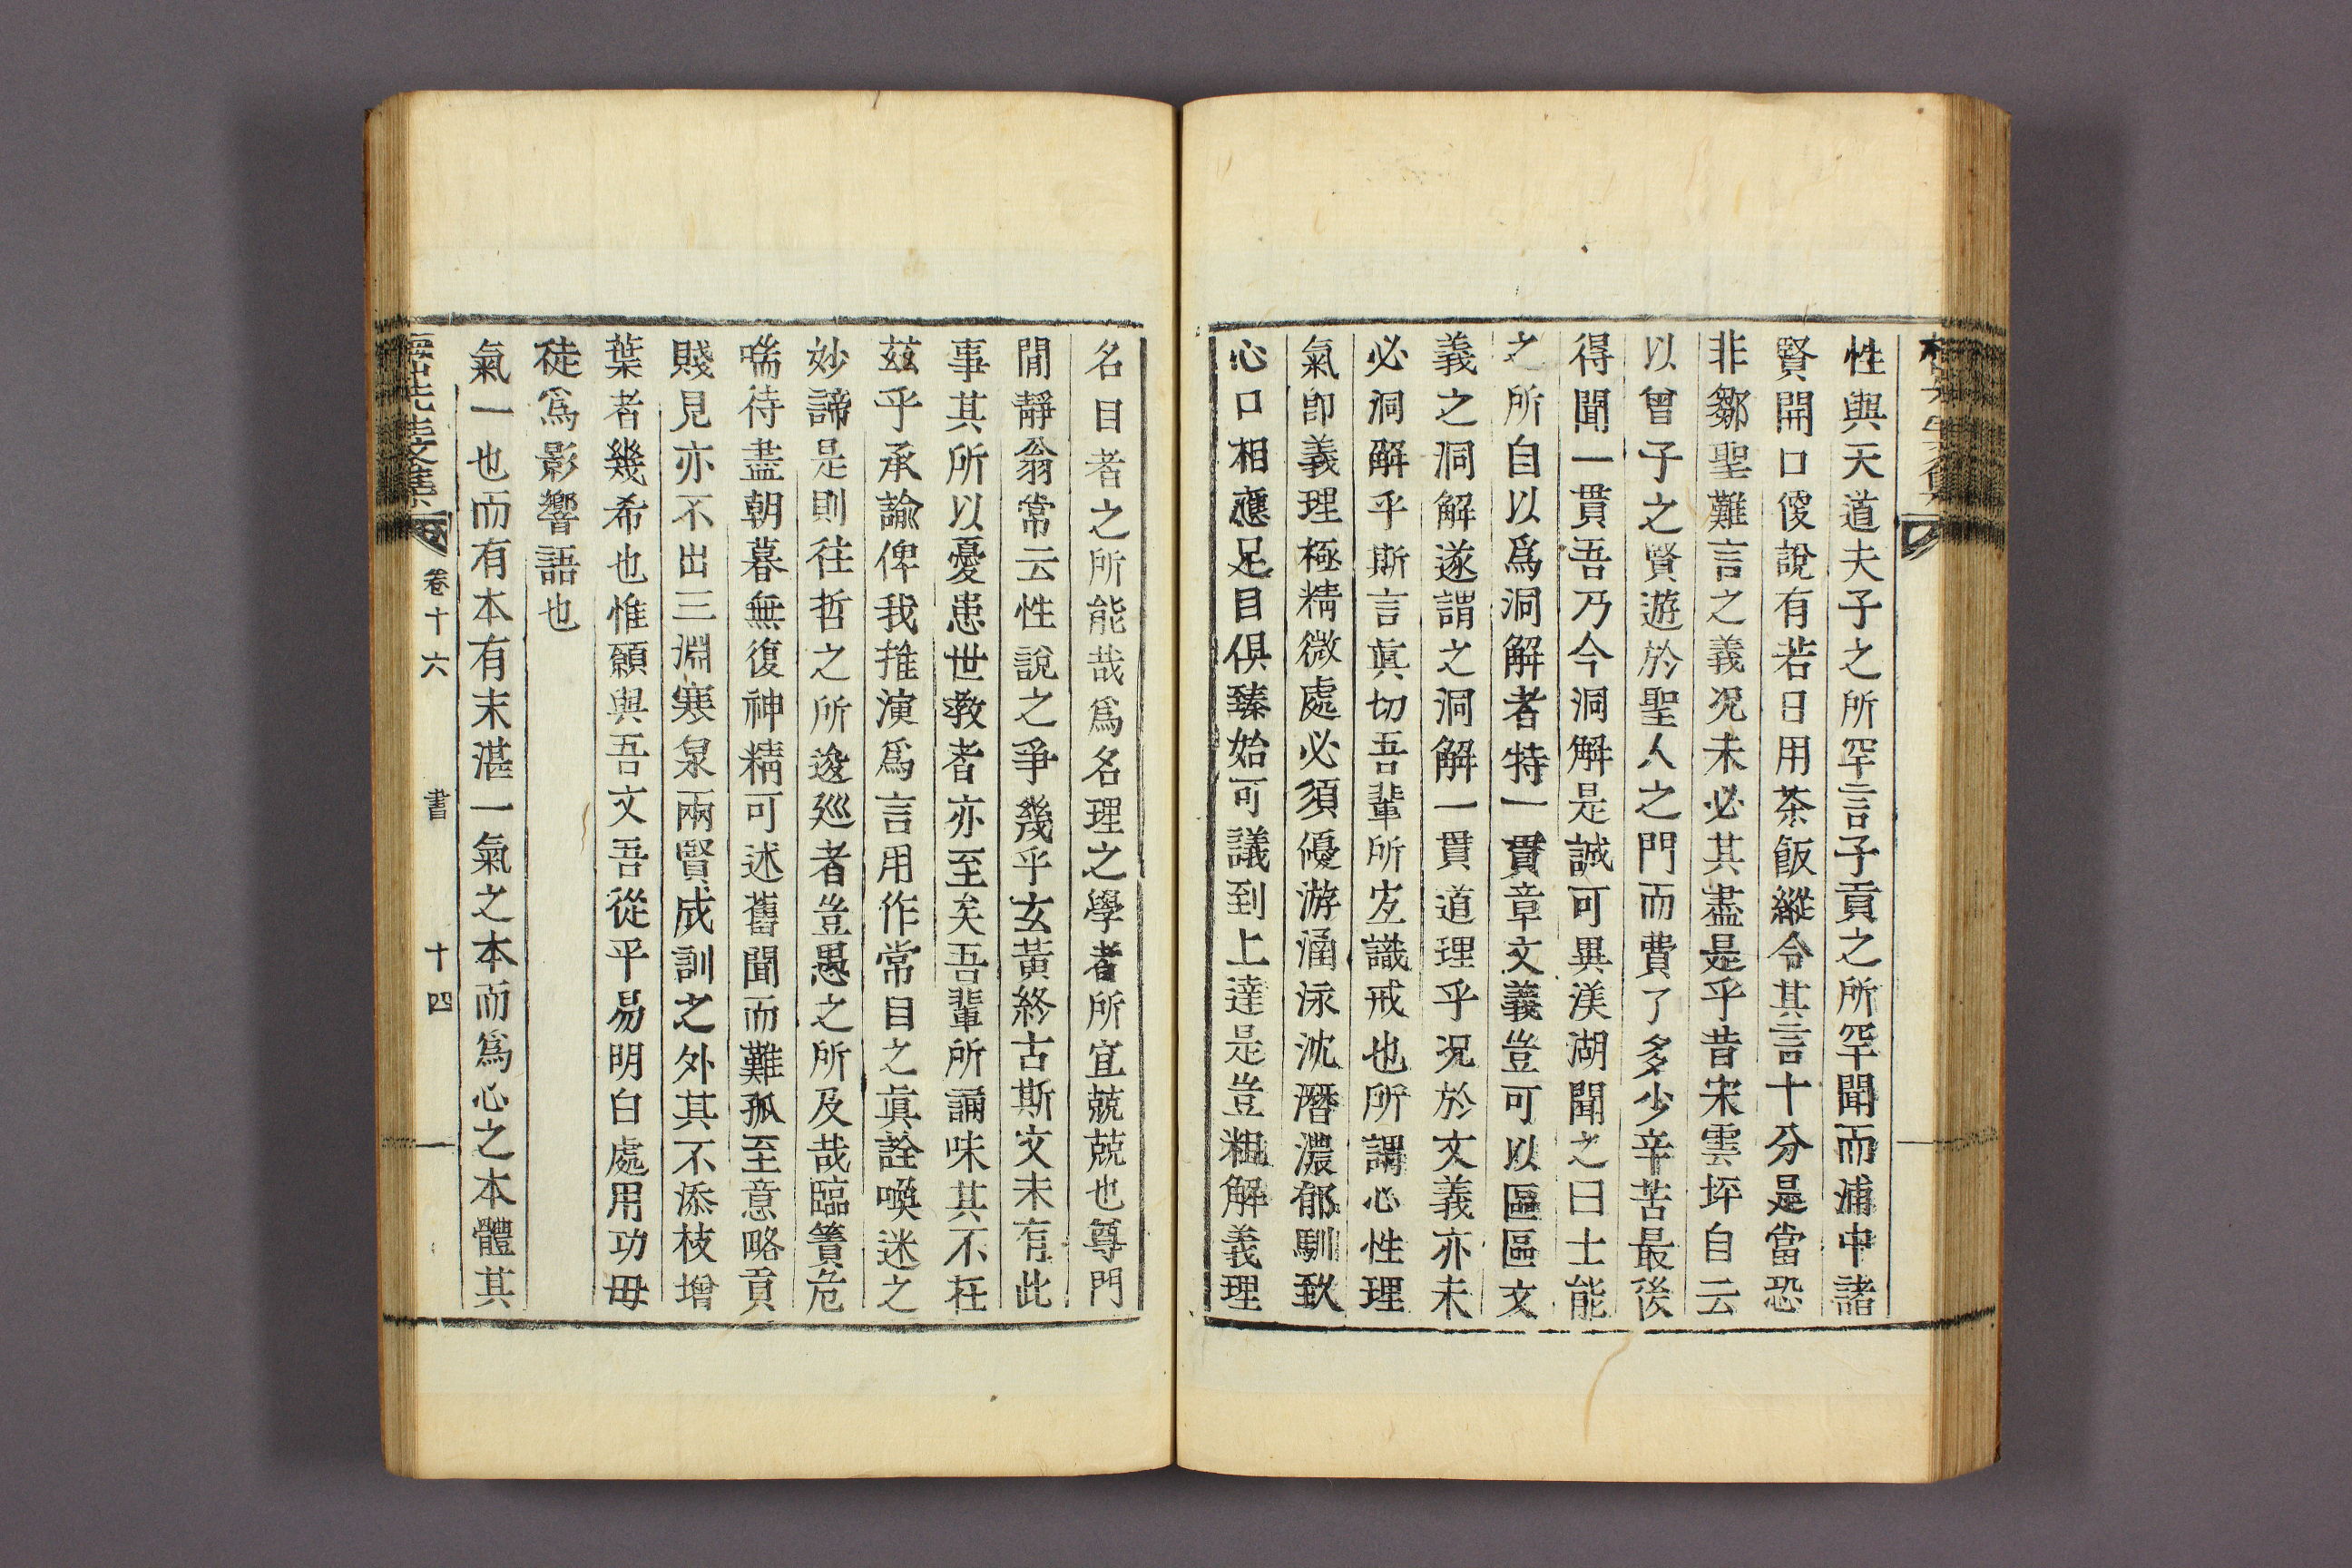 性與天道夫子之所罕言子貢之所罕聞而浦中諸
賢開口傁說有若日用茶飯縱令其言十分是當恐
非鄒聖難言之義况未必其盡是乎昔宋雲坪自云
以曾子之賢遊於聖人之門而費了多少辛苦最後
得聞一貫吾乃今洞解是誠可異渼湖聞之曰士能
之所自以爲洞解者特一貫章文義豈可以區區文
義之洞解遂謂之洞解一貫道理乎况於文義亦未
必洞解乎斯言眞切吾輩所宜識戒也所謂心性理
氣卽義理極精微處必須優游涵泳沈潛濃郁馴致
心口相應足目俱臻始可議到上達是豈粗解義理
名目者之所能哉爲名理之學者所宜兢兢也尊門
閒靜翁常云性說之爭幾乎玄黃終古斯文未有此
事其所以憂患世敎者亦至矣吾輩所誦味其不在
玆乎承諭俾我推演爲言用作常目之眞詮喚迷之
妙諦是則往哲之所逡巡者豈愚之所及哉臨簀危
喘待盡朝暮無復神精可述舊聞而難孤至意略貢
賤見亦不出三淵寒泉兩賢成訓之外其不添枝增
葉者幾希也惟願與吾文吾從平易明白處用功毋
徒爲影響語也
氣一也而有本有末湛一氣之本而爲心之本體其
卷十六 書 十四